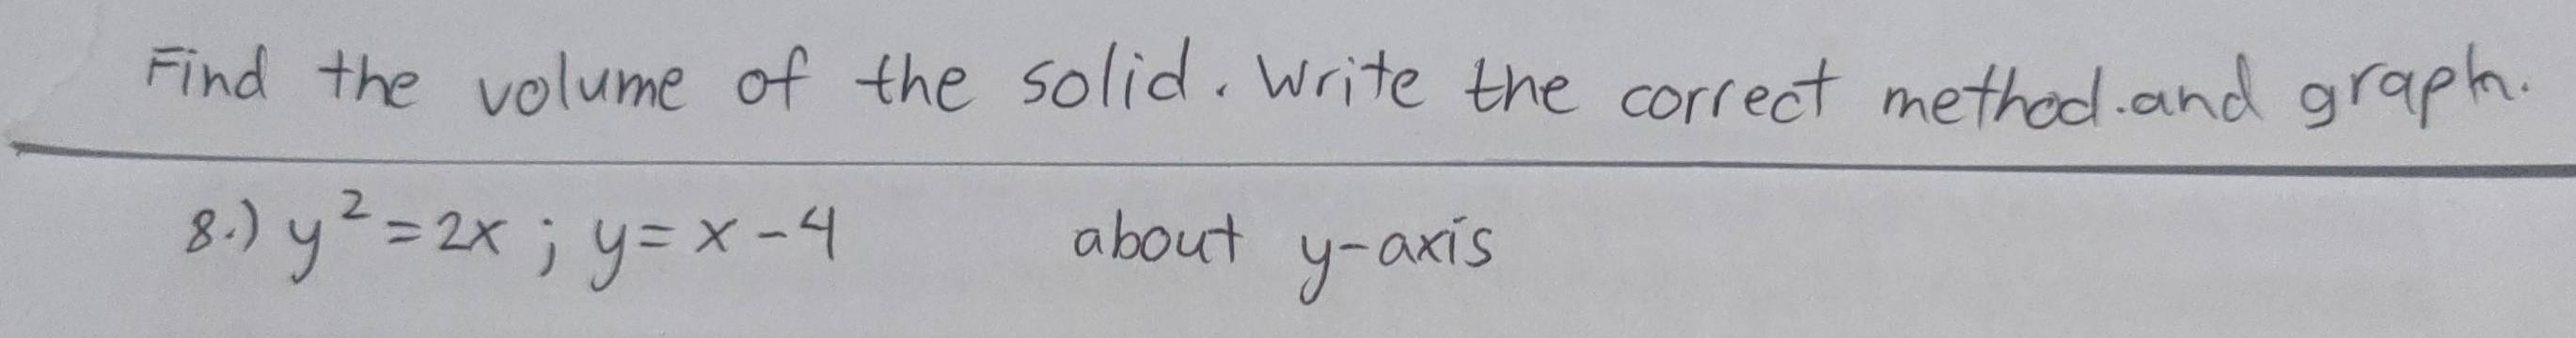 Find the volume of the solid. Write the correct method.and graph.
8.) y² = 2x ; y = x - 4 about y-axis